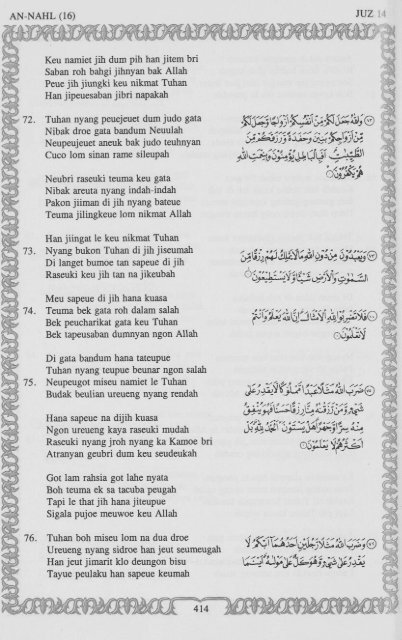 AN-NAHL (16) JUZ 14
Keu namiet jih dum pih han jitem bri
Saban roh bahgi jihnyan bak Allah
Peue jih jiungki keu nikmat Tuhan
Han jipeuesaban jibri napakah
72. Tuhan nyang peuejeuet dum judo gata
Nibak droe gata bandum Neuulah
Neupeujeuet aneuk bak judo teuhnyan
Cuco lom sinan rame sileupah
وَاللّٰهُ جَعَلَ لَكُمْ مِّنْ اَنْفُسِكُمْ اَزْوَاجًا وَّجَعَلَ لَكُمْ
مِّنْ اَزْوَاجِكُمْ بَنِيْنَ وَحَفَدَةً وَّرَزَقَكُمْ مِّنَ
الطَّيِّبٰتِ اَفَبِالْبَاطِلِ يُؤْمِنُوْنَ وَبِنِعْمَتِ اللّٰهِ
هُمْ يَكْفُرُوْنَ
Neubri raseuki teuma keu gata
Nibak areuta nyang indah-indah
Pakon jiiman di jih nyang bateue
Teuma jilingkeue lom nikmat Allah
Han jiingat le keu nikmat Tuhan
73. Nyang bukon Tuhan di jih jiseumah
Di langet bumoe tan sapeue di jih
Raseuki keu jih tan na jikeubah
وَيَعْبُدُوْنَ مِنْ دُوْنِ اللّٰهِ مَا لَا يَمْلِكُ لَهُمْ رِزْقًا مِّنَ
السَّمٰوٰتِ وَالْاَرْضِ شَيْـًٔا وَّلَا يَسْتَطِيْعُوْنَ
Meu sapeue di jih hana kuasa
74. Teuma bek gata roh dalam salah
Bek peucharikat gata keu Tuhan
Bek tapeusaban dumnyan ngon Allah
فَلَا تَضْرِبُوْا لِلّٰهِ الْاَمْثَالَ اِنَّ اللّٰهَ يَعْلَمُ وَاَنْتُمْ
لَا تَعْلَمُوْنَ
Di gata bandum hana tateupue
Tuhan nyang teupue beunar ngon salah
75. Neupeugot miseu namiet le Tuhan
Budak beulian ureueng nyang rendah
ضَرَبَ اللّٰهُ مَثَلًا عَبْدًا مَّمْلُوْكًا لَّا يَقْدِرُ عَلٰى
شَيْءٍ وَّمَنْ رَّزَقْنٰهُ مِنَّا رِزْقًا حَسَنًا فَهُوَ يُنْفِقُ
مِنْهُ سِرًّا وَّجَهْرًا هَلْ يَسْتَوٗنَ اَلْحَمْدُ لِلّٰهِ بَلْ
اَكْثَرُهُمْ لَا يَعْلَمُوْنَ
Hana sapeue na dijih kuasa
Ngon ureueng kaya raseuki mudah
Raseuki nyang jroh nyang ka Kamoe bri
Atranyan geubri dum keu seudeukah
Got lam rahsia got lahe nyata
Boh teuma ek sa tacuba peugah
Tapi le that jih hana jiteupue
Sigala pujoe meuwoe keu Allah
76. Tuhan boh miseu lom na dua droe
Ureueng nyang sidroe han jeut seumeugah
Han jeut jimarit klo deungon bisu
Tayue peulaku han sapeue keumah
وَضَرَبَ اللّٰهُ مَثَلًا رَّجُلَيْنِ اَحَدُهُمَآ اَبْكَمُ لَا
يَقْدِرُ عَلٰى شَيْءٍ وَّهُوَ كَلٌّ عَلٰى مَوْلٰىهُ اَيْنَمَا
414